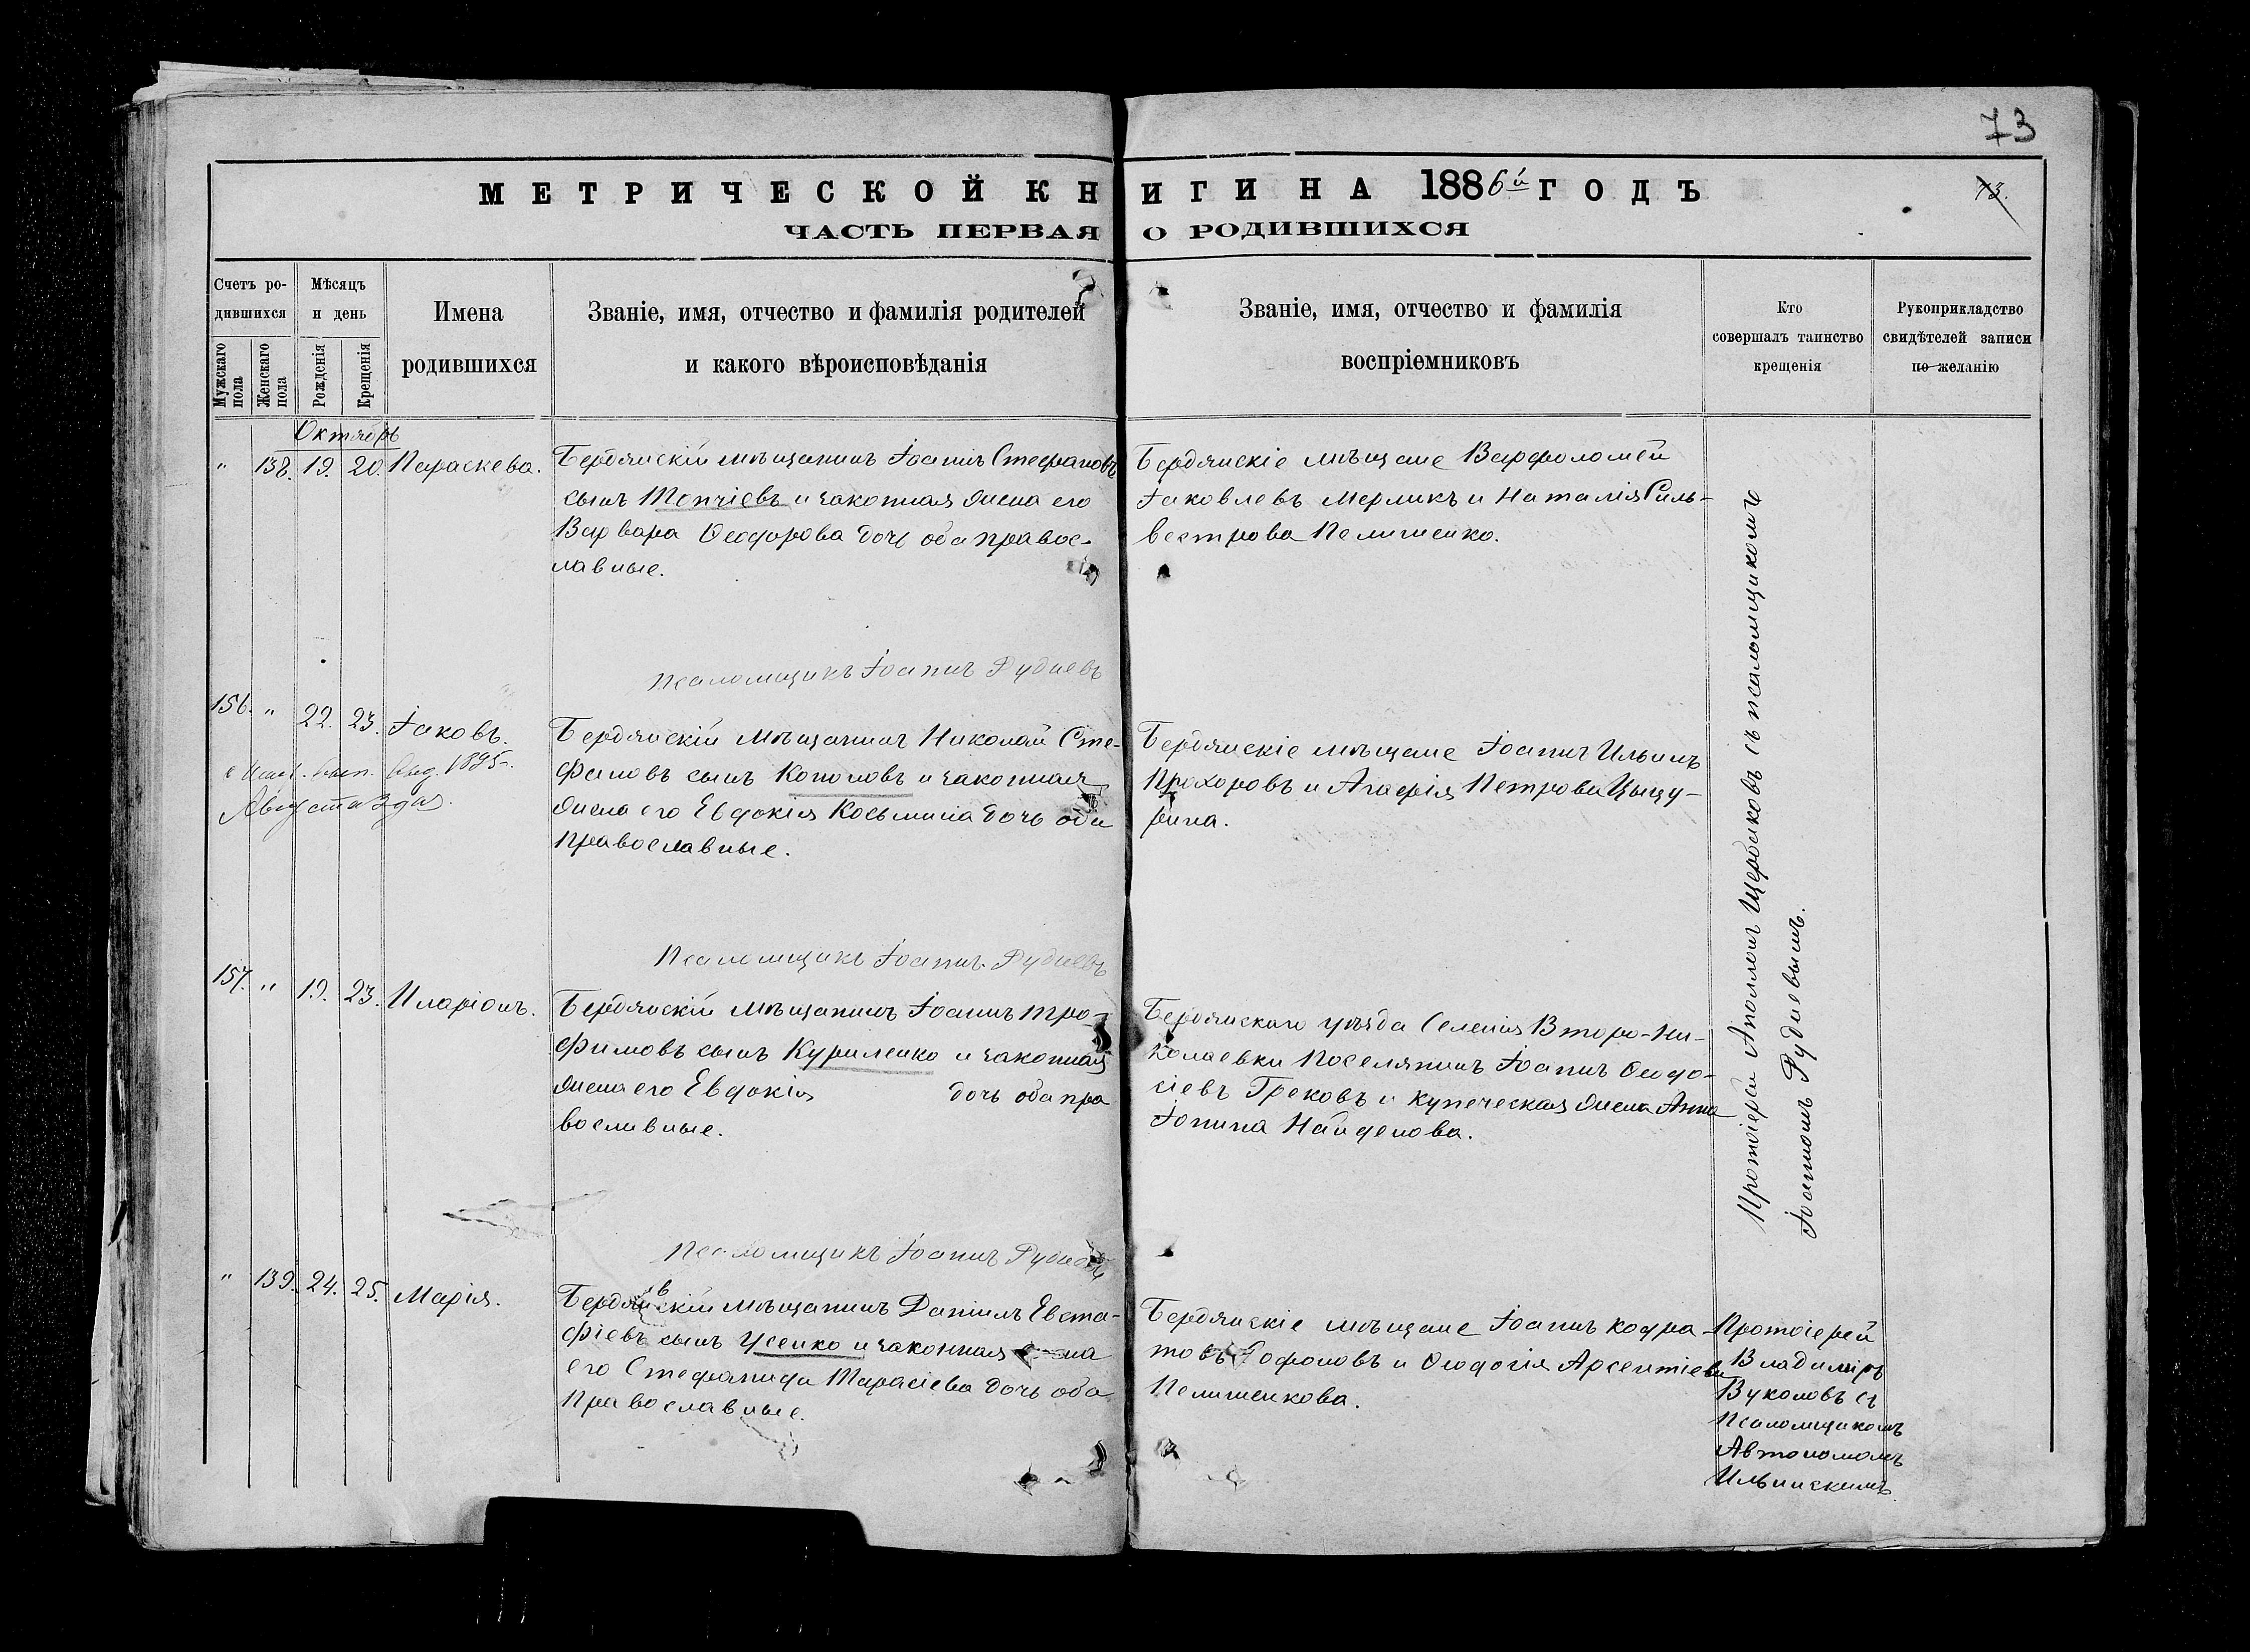 73
МЕТРИЧЕСКОЙ КНИГИ НА 1886й ГОДЪ
73.
ЧАСТЬ ПЕРВАЯ О РОДИВШИХСЯ
Счетъ ро-
дившихся
Мужскаго пола
Женскаго пола
Мѣсяцъ
и день
Рожденія
Крещенія
Имена
родившихся
Званіе, имя, отчество и фамилія родителей
и какого вѣроисповѣданія
Званіе, имя, отчество и фамилія
воспріемниковъ
Кто
совершалъ таинство
крещенія
Рукоприкладство
свидѣтелей записи
по желанію
Октябрь
" 138. 19. 20. Параскева.
Бердянскій мѣщанинъ Іоаннъ Стефановъ
сынъ Топчіевъ и законная жена его
Варвара Ѳеодорова дочь оба правос-
лавные.
Бердянскіе мѣщане Варфоломей
Іаковлевъ Мерликъ и Наталія Силь-
вестрова Пелишенко.
Псаломщикъ Іоаннъ Рудневъ
156. " 22. 23. Іаковъ.
выд. 1895
Августа 3 дня.
Бердянскій мѣщанинъ Николай Сте-
фановъ сынъ Кононовъ и законная
жена его Евдокія Косьмина дочь оба
православные.
Бердянскіе мѣщане Іоаннъ Ильинъ
Прохоровъ и Агафія Петрова Цыцу-
рина.
Псаломщикъ Іоаннъ Рудневъ
157. " 19. 23. Иларіонъ.
Бердянскій мѣщанинъ Іоаннъ Тро-
фимовъ сынъ Куриленко и законная
жена его Евдокія дочь оба пра
вославные.
Бердянскаго уѣзда Селенія Второ-Ни-
колаевки поселянинъ Іоаннъ Ѳеодо-
сіевъ Грековъ и купеческая жена Анна
Іонина Найденова.
Протоіерей Аполлонъ Щербаковъ съ псаломщикомъ
Іоанномъ Рудневымъ.
Псаломщикъ Іоаннъ Рудневъ
" 139. 24. 25. Марія.
Бердянскій мѣщанинъ Даніилъ Евста-
фіевъ сынъ Усенко и законная жена
его Стефанида Тарасіева дочь оба
православные.
Бердянскіе мѣщане Іоаннъ Кодра-
товъ и Ѳеодосія Арсентіева
Пелишенкова.
Протоіерей
Владиміръ
Вуколовъ съ
псаломщикомъ
Автономомъ
Ильинскимъ.